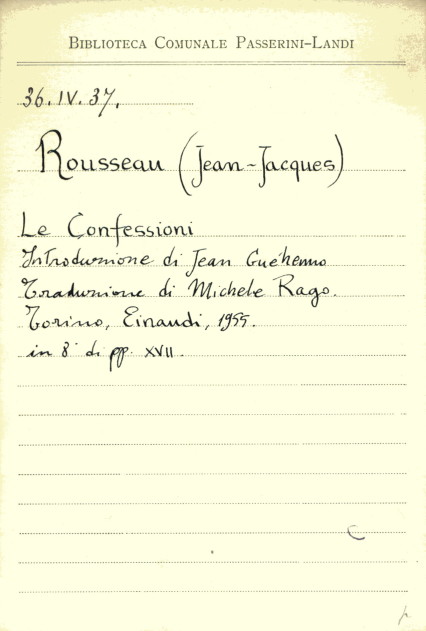 BIBLIOTECA COMUNALE PASSERINI-LANDI
36.IV.37.
Rousseau (Jean-Jacques)
Le Confessioni
Introduzione di Jean Guéhenno
Traduzione di Michele Rago.
Torino, Einaudi, 1955.
in 8° di pp. XVII.